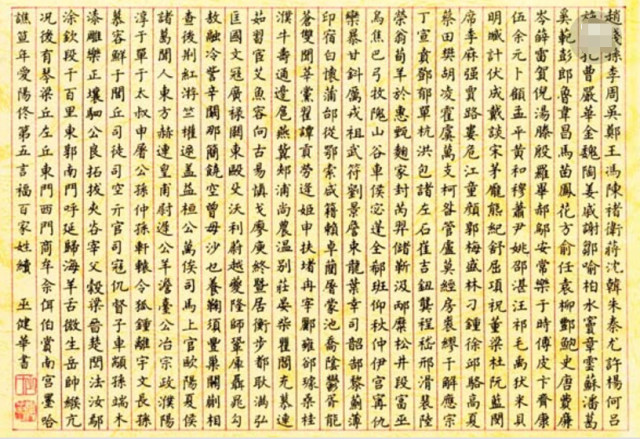 趙錢孫李周吳鄭王馮陳褚衛蔣沈韓朱秦尤許楊何呂
施孔曹嚴華金魏陶姜戚謝鄒喻柏水竇章雲蘇潘葛
奚範彭郎魯韋昌馬苗鳳花方俞任袁柳酆鮑史唐費廉
岑薛雷賀倪湯滕殷羅畢郝鄔安常樂于時傅皮卞齊康
伍余元卜顧孟平黃和穆蕭尹姚邵湛汪祁毛禹狄米貝
明臧計伏成戴談宋茅龐熊紀舒屈項祝董梁杜阮藍閔
席季麻強賈路婁危江童顏郭梅盛林刁鍾徐邱駱高夏
蔡田樊胡凌霍虞萬支柯昝管盧莫經房裘繆干解應宗
丁宣賁鄧郁單杭洪包諸左石崔吉鈕龔程嵇邢滑裴陸
榮翁荀羊於惠甄麴家封芮羿儲靳汲邴糜松井段富巫
烏焦巴弓牧隗山谷車侯宓蓬全郗班仰秋仲伊宮甯仇
欒暴甘鈄厲戎祖武符劉景詹束龍葉幸司韶郜黎薊薄
印宿白懷蒲邰從鄂索咸籍賴卓藺屠蒙池喬陰鬱胥能
蒼雙聞莘黨翟譚貢勞逄姬申扶堵冉宰酈雍郤璩桑桂
濮牛壽通邊扈燕冀郟浦尚農溫別莊晏柴瞿閻充慕連
茹習宦艾魚容向古易慎戈廖庾終暨居衡步都耿滿弘
匡國文寇廣祿闕東歐殳沃利蔚越夔隆師鞏厙聶晁勾
敖融冷訾辛闞那簡饒空曾毋沙乜養鞠須豐巢關蒯相
查後荊紅游竺權逯蓋益桓公萬俟司馬上官歐陽夏侯
諸葛聞人東方赫連皇甫尉遲公羊澹臺公冶宗政濮陽
淳于單于太叔申屠公孫仲孫軒轅令狐鍾離宇文長孫
慕容鮮于閭丘司徒司空亓官司寇仉督子車顓孫端木
漆雕樂正壤駟公良拓拔夾谷宰父穀梁晉楚閆法汝鄢
涂欽段干百里東郭南門呼延歸海羊舌微生岳帥緱亢
況後有琴梁丘左丘東門西門商牟佘佴伯賞南宮墨哈
譙笪年愛陽佟第五言福百家姓續 巫健華書